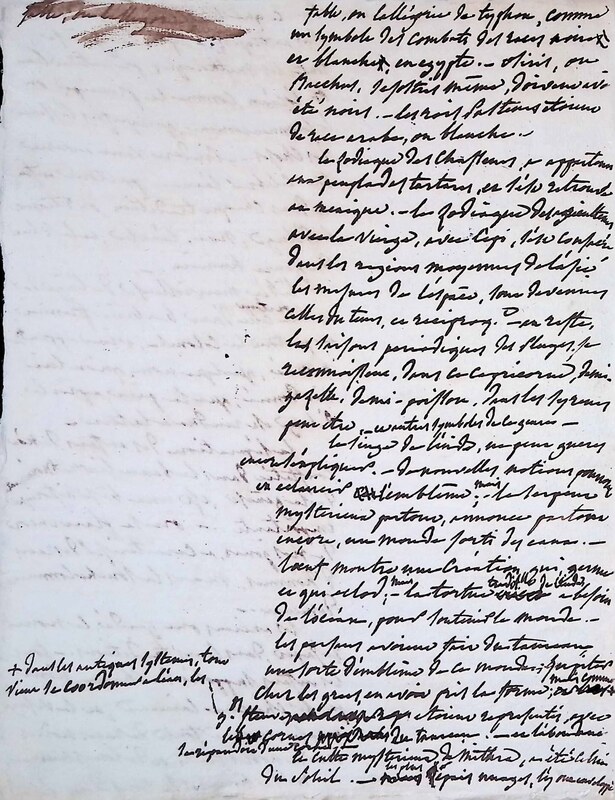 fable, ou l'allégorie de typhon, comme
un symbole des combats des races noires
et blanches, en egypte. – osiris, ou
Bacchus, Sesostris même, doivent avoir
été noirs. – les rois Pasteurs etoient
de race arabe, ou blanche. –
le Zodiaque des Chasseurs, a appartenu
aux peuplades tartares, et s'est retrouvé
au mexique. – le Zodiaque des agriculteurs
avec la Vierge, avec l'epi, s'est conservé
dans les régions moyennes de l'asie
les mesures de l'espace, sont devenues
celles du tems, et reciproq. – en reste,
les saisons periodiques des pluies, se
reconnoissent, dans ce capricorne, demi
gazelle, demi-poisson, dans les syrenes
peut être, – et autres symboles de ce genre –
le singe de l'inde, ne peut gueres
encore s'expliquer. – de nouvelles notices pourront
en eclaircir l'emblême. – mais le serpent
mysterieux partout, annonce partout
encore, un monde sorti des eaux. –
l'oeuf montre une Création, qui germe
et qui eclot; – mais la tortue de l'inde a besoin
de l'océan, pour soutenir le monde. –
les perses avoient fait du taureau,
une sorte d'emblême de ce monde; Jupiter
chez les grecs, en avoit pris la forme; mais comme
+ dans les antiques systemes, tout
vient se coordonner a lien, les
fleuves etoient representés, avec
les cornes du taureau. –
le culte mysterieux de Mithra, a été celui
du Soleil. – les plus epais nuages,